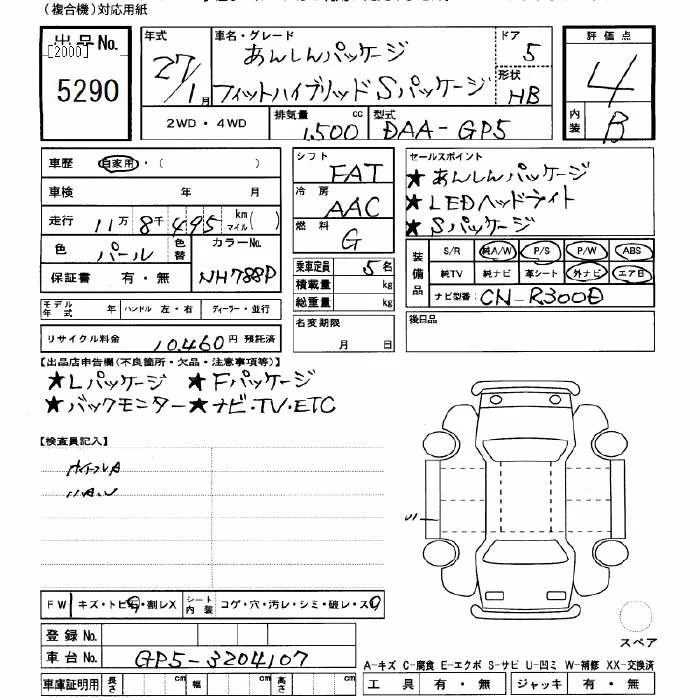 (複合機)対応用紙
出品No.
[2000]
5290
年式
27/1月
車名・グレード
あんしんパッケージ
フィットハイブリッド Sパッケージ
ドア
5
形状
HB
評価点
4
内装
B
2WD・4WD
排気量
1,500 cc
型式
DAA-GP5
車歴
自家用・( )
車検 年 月
走行 11万 8千 495 km マイル ( )
色 パール 色替
カラーNo.
NH788P
保証書 有・無
モデル年式
ハンドル 左・右
ディーラー・並行
リサイクル料金
10,460円 預託済
シフト
FAT
冷房
AAC
燃料
G
乗車定員 5名
積載量 kg
総重量 kg
名変期限
月 日
セールスポイント
★あんしんパッケージ
★LEDヘッドライト
★Sパッケージ
装備品
S/R 純A/W P/S P/W ABS
純TV 純ナビ 革シート 外ナビ エアB
ナビ型番: CN-R300D
後日品
【出品店申告欄(不良箇所・欠品・注意事項等)】
★Lパッケージ ★Fパッケージ
★バックモニター★ナビ・TV・ETC
【検査員記入】
U1
FW キズ・トビ石・割レX
シート内装 コゲ・穴・汚レ・シミ・破レ・スレ
登録No.
車台No. GP5-3204107
車庫証明用 長さ cm 幅 cm 高さ cm
スペア
A-キズ C-腐食 E-エクボ S-サビ U-凹ミ W-補修 XX-交換済
工具 有・無 ジャッキ 有・無